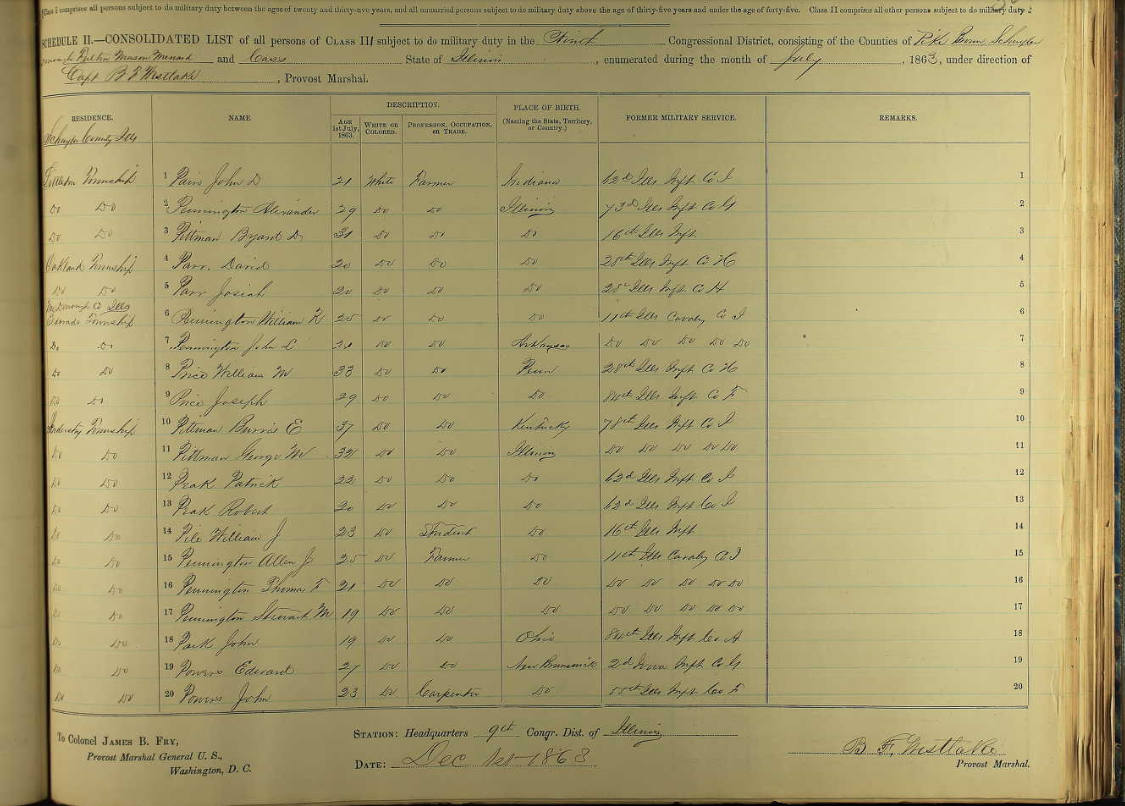 Class I comprises all persons subject to do military duty between the ages of twenty and thirty-five years, and all unmarried persons subject to do military duty above the age of thirty-five years and under the age of forty-five. Class II comprises all other persons subject to do military duty
SCHEDULE II.—CONSOLIDATED LIST of all persons of CLASS III subject to do military duty in the Ninth Congressional District, consisting of the Counties of Pike Brown Schuyler
Fulton Mason Menard and Cass State of Illinois, enumerated during the month of July, 1863, under direction of
Capt B F Westlake, Provost Marshal.
RESIDENCE. NAME. DESCRIPTION. PLACE OF BIRTH. FORMER MILITARY SERVICE. REMARKS.
AGE 1st July, 1863. WHITE OR COLORED. PROFESSION, OCCUPATION, OR TRADE. (Naming the State, Territory, or Country.)
Schuyler County Ills
Littleton Township 1 Pain John D 21 White Farmer Indiana 62d Ills Inft Co I 1
Do Do 2 Pennington Alexander 29 Do Do Illinois 73d Ills Inft Co G 2
Do Do 3 Pittman Byard D. 31 Do Do Do 16th Ills Inft 3
Oakland Township 4 Parr David 20 Do Do Do 28th Ills Inft Co H 4
Do Do 5 Parr Josiah 20 Do Do Do 28th Ills Inft Co H 5
McDonough Co Ills
Township 6 Pennington William K 25 Do Do Do 11th Ills Cavalry Co I 6
Do Do 7 Pennington John L 21 Do Do Arkansas Do Do Do Do Do 7
Do Do 8 Price William M 33 Do Do Penn 28th Ills Inft Co H 8
Do Do 9 Price Joseph 29 Do Do Do 84th Ills Inft Co F 9
Industry Township 10 Pittman Burris E 37 Do Do Kentucky 78th Ills Inft Co I 10
Do Do 11 Pittman George W 32 Do Do Illinois Do Do Do Do Do 11
Do Do 12 Peak Patrick 22 Do Do Do 62d Ills Inft Co I 12
Do Do 13 Peak Robert 20 Do Do Do 62d Ills Inft Co I 13
Do Do 14 Pile William J 23 Do Student Do 16th Ills Inft 14
Do Do 15 Pennington Allen J 25 Do Farmer Do 11th Ills Cavalry Co I 15
Do Do 16 Pennington Thomas F 21 Do Do Do Do Do Do Do Do 16
Do Do 17 Pennington Stewart M 19 Do Do Do Do Do Do Do Do 17
Do Do 18 Park John 19 Do Do Ohio 84th Ills Inft Co A 18
Do Do 19 Powers Edward 27 Do Do New Brunswick 2d Iowa Inft Co G 19
Do Do 20 Powers John 23 Do Carpenter Do 55th Ills Inft Co F 20
To Colonel JAMES B. FRY,
Provost Marshal General U. S.,
Washington, D. C.
STATION: Headquarters 9th Congr. Dist. of Illinois
DATE: Dec 1st 1863
B. F. Westlake
Provost Marshal.